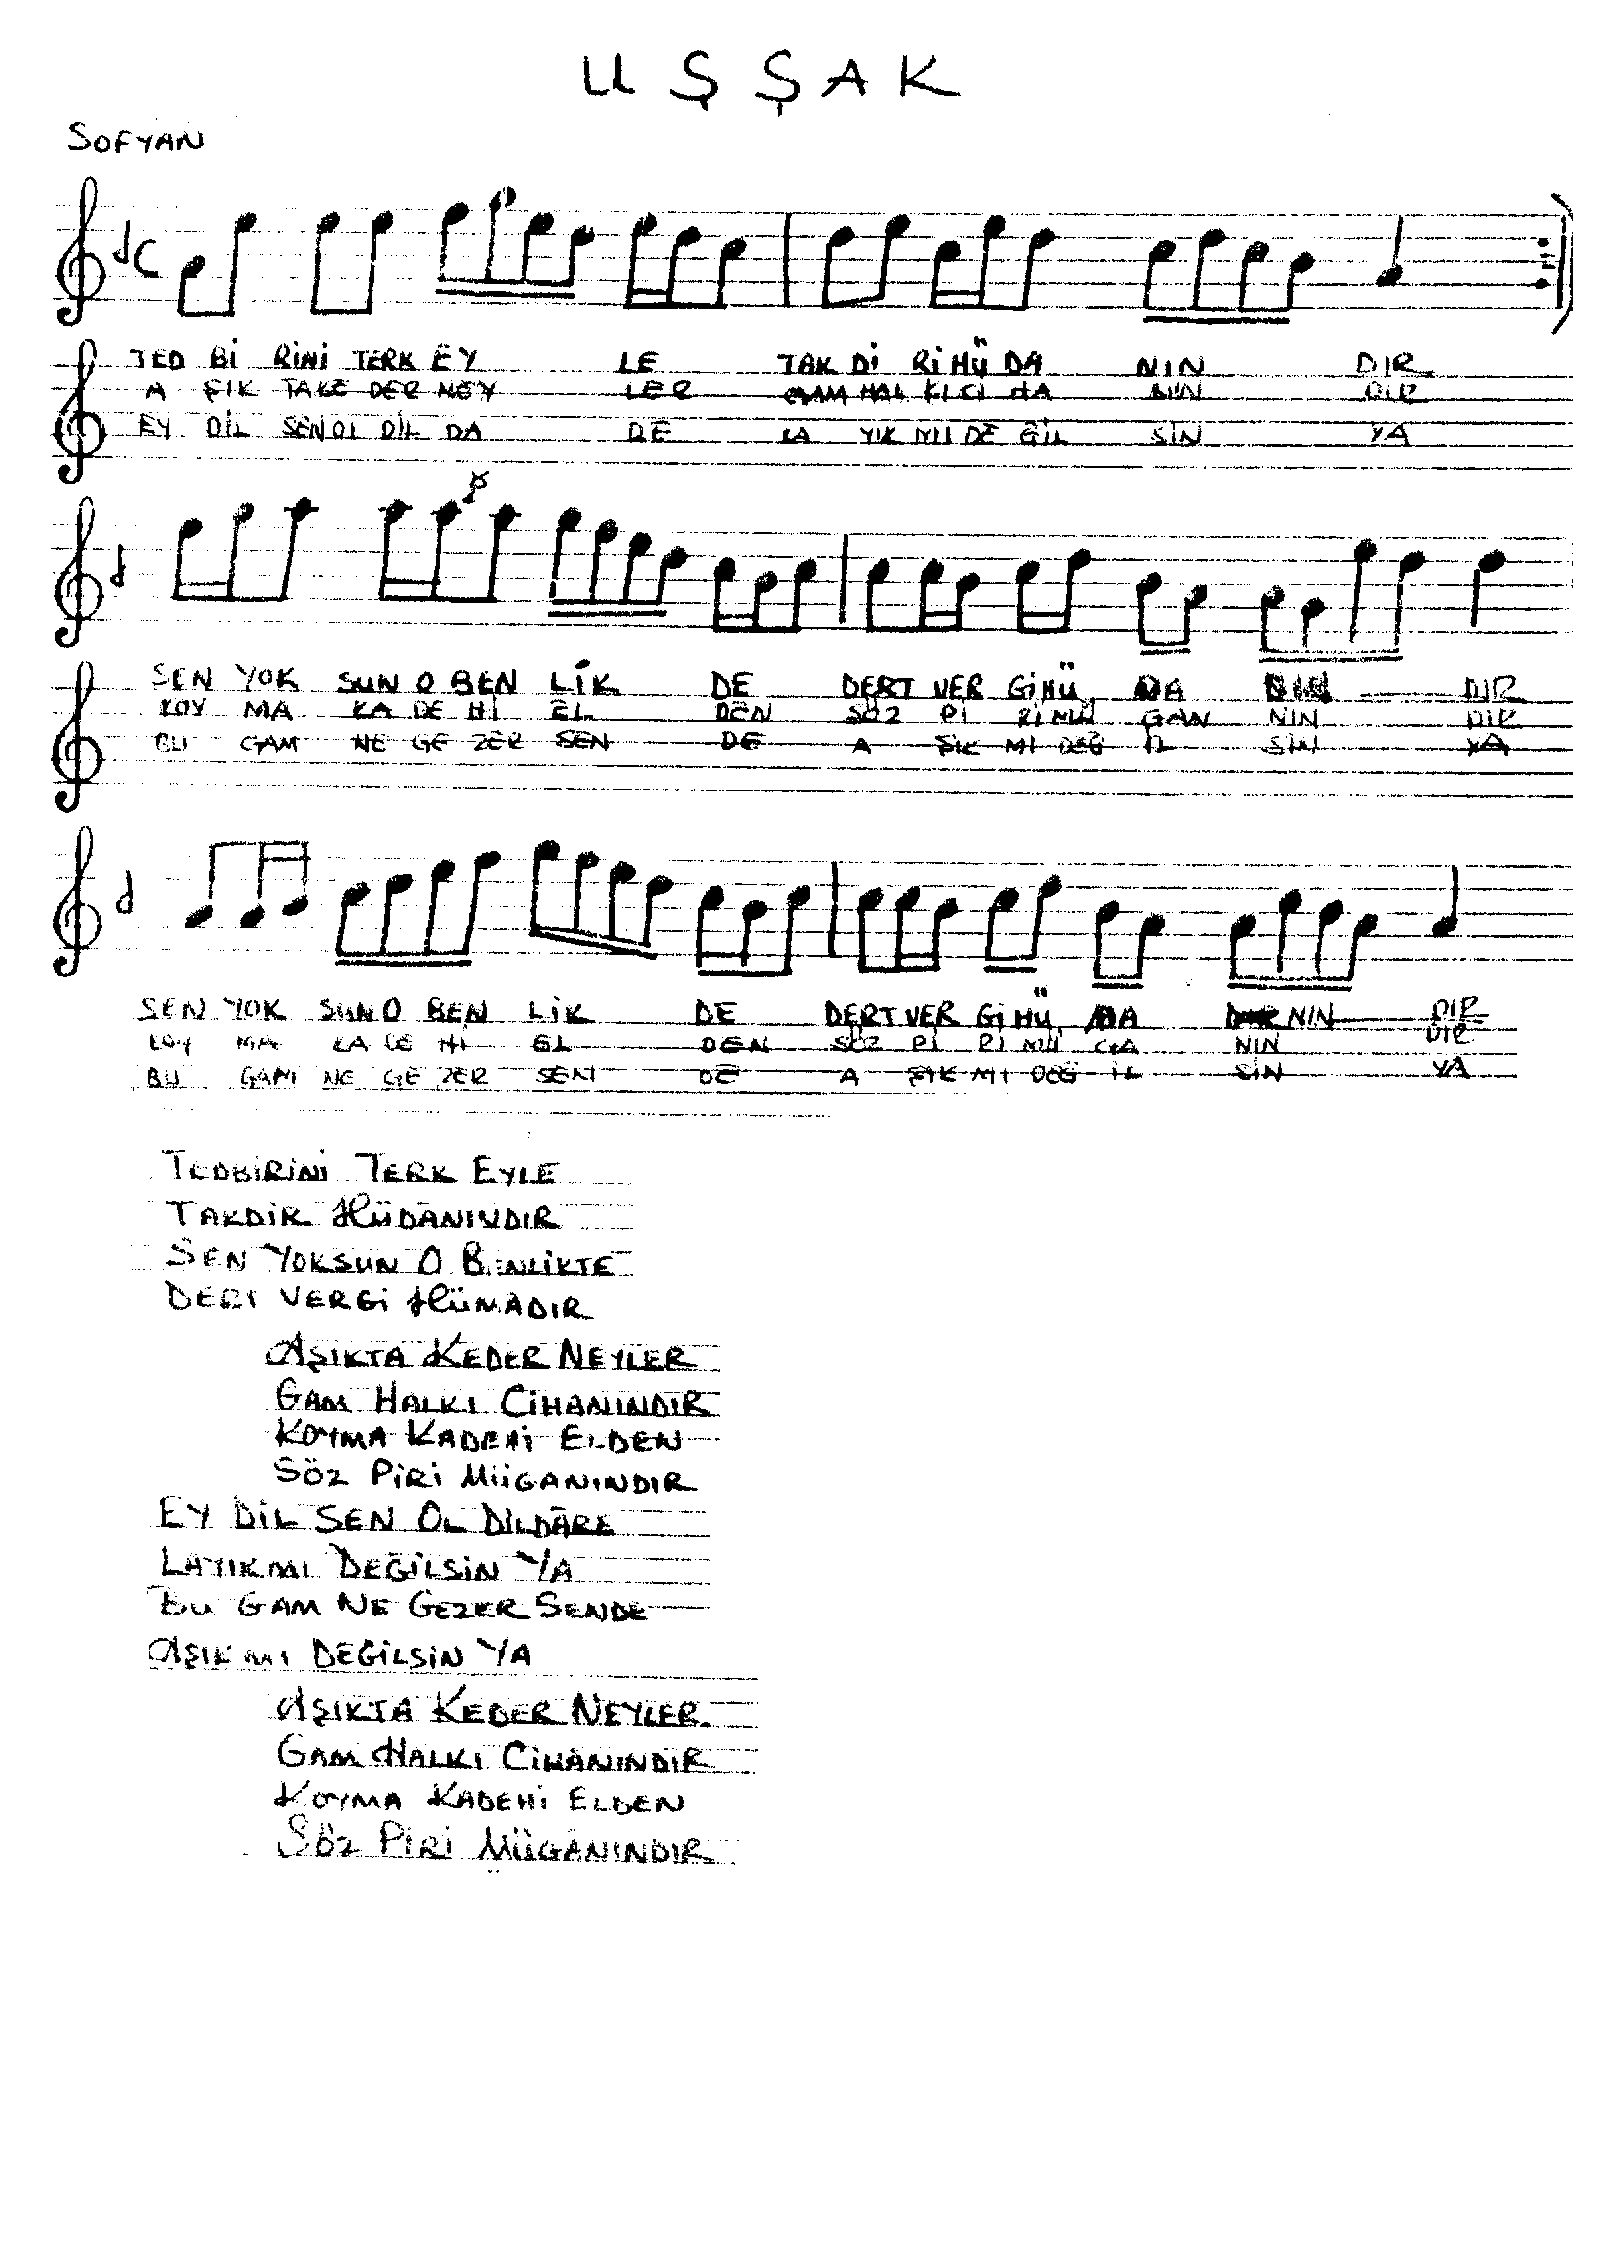 UŞŞAK
SOFYAN
TED Bİ RİNİ TERK EY LE TAK Dİ Rİ HÜ DA NIN DIR
A ŞIK TAKE DER NEY LER GAM HAL KI Cİ HA NIN DIR
EY DİL SEN OL DİL DA DE LA YIK MI DE GİL SİN YA
SEN YOK SUN O BEN LİK DE DERT VER Gİ HÜ DA DIR
KOY MA KA DE Hİ EL DEN SÖZ Pİ Rİ MÜ GAN NIN DIR
BU GAM NE GE ZER SEN DE A ŞIK MI DEĞ İL SİN YA
SEN YOK SUN O BEN LİK DE DERT VER Gİ HÜ DA NIN DIR
KOY MA KA DE Hİ EL DEN SÖZ Pİ Rİ MÜ GA NIN DIR
BU GAM NE GE ZER SEN DE A ŞIK MI DEĞ İL SİN YA
TEDBİRİNİ TERK EYLE
TAKDİR HÜDÂNINDIR
SEN YOKSUN O BENLİKTE
DERT VERGİ HÜMÂDIR
AŞIKTA KEDER NEYLER
GAM HALKI CİHANINDIR
KOYMA KADEHİ ELDEN
SÖZ PİRİ MÜGANINDIR
EY DİL SEN OL DİLDÂRE
LAYIKMI DEĞİLSİN YA
BU GAM NE GEZER SENDE
AŞIK MI DEĞİLSİN YA
AŞIKTA KEDER NEYLER
GAM HALKI CİHANINDIR
KOYMA KADEHİ ELDEN
SÖZ PİRİ MÜGÂNINDIR